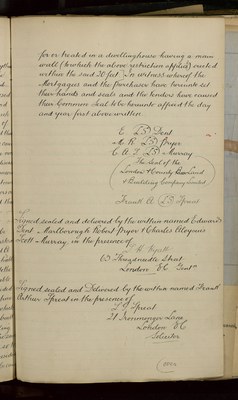 for or treated in a dwellinghouse having a main
wall (to which the above restriction applies) erected
within the said 20 feet In witness whereof the
Mortgagees and the Purchaser have hereunto set
their hands and seals and the Vendors have caused
their Common Seal to be hereunto affixed the day
and year first above written.
E (LS) Dent
M. R. (LS) Pryor
C A S (LS) Murray
The Seal of the
London & County Land
& Building Company Limited
Frank A (LS)
Signed sealed and delivered by the within named Edward
Dent Marlborough Robert Pryor & Charles Aloysius
Scott Murray in the presence of
63 Threadneedle Street
London EC Gent
Signed sealed and Delivered by the within named Frank
Arthur in the presence of
21 Ironmonger Lane
London EC
Solicitor